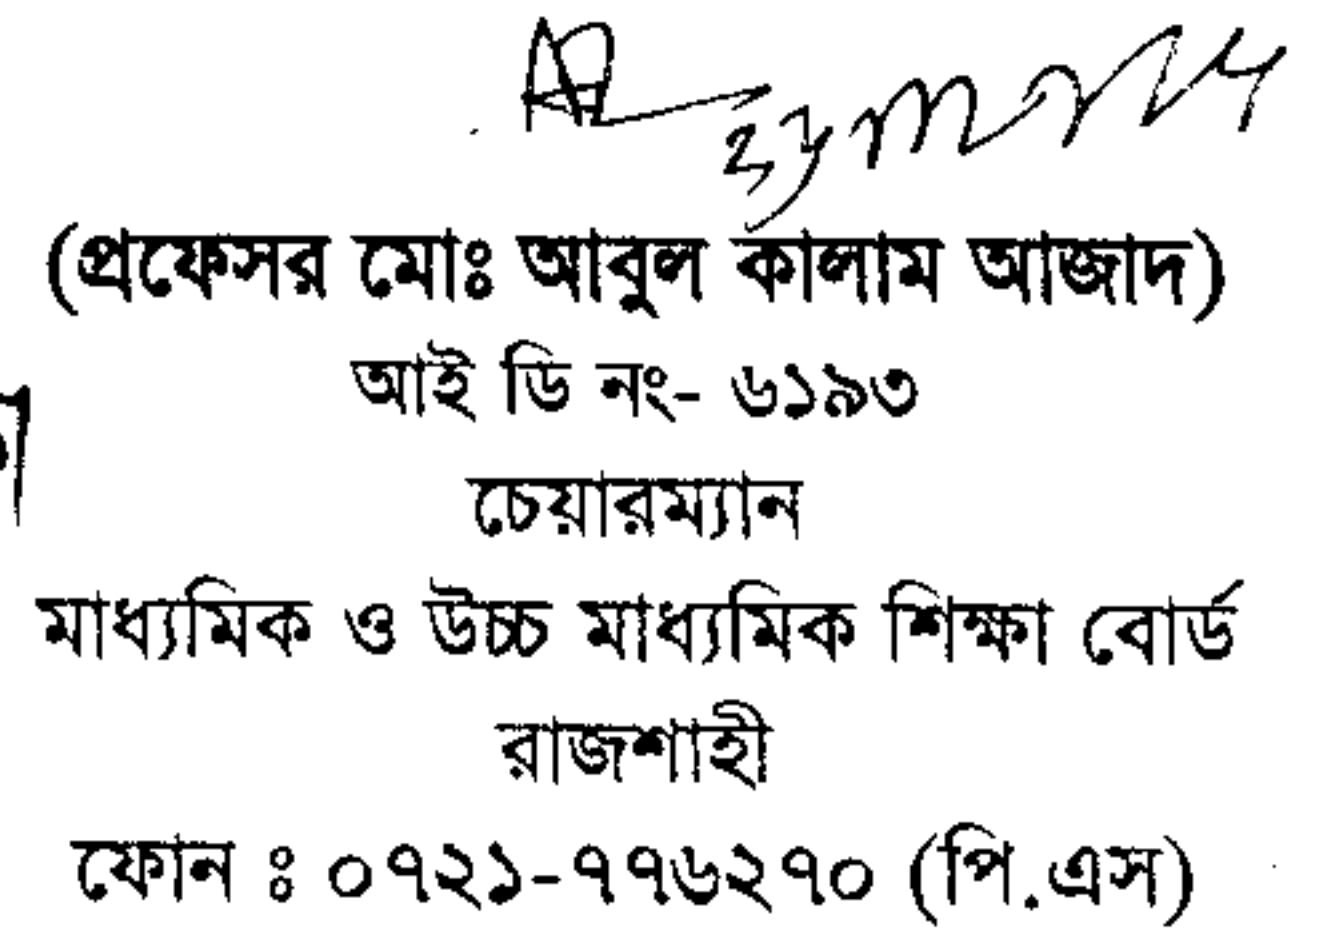 (প্রফেসর মোঃ আবুল কালাম আজাদ)
আই ডি নং- ৬১৯৩
চেয়ারম্যান
মাধ্যমিক ও উচ্চ মাধ্যমিক শিক্ষা বোর্ড
রাজশাহী
ফোন : ০৭২১-৭৭৬২৭০ (পি.এস)